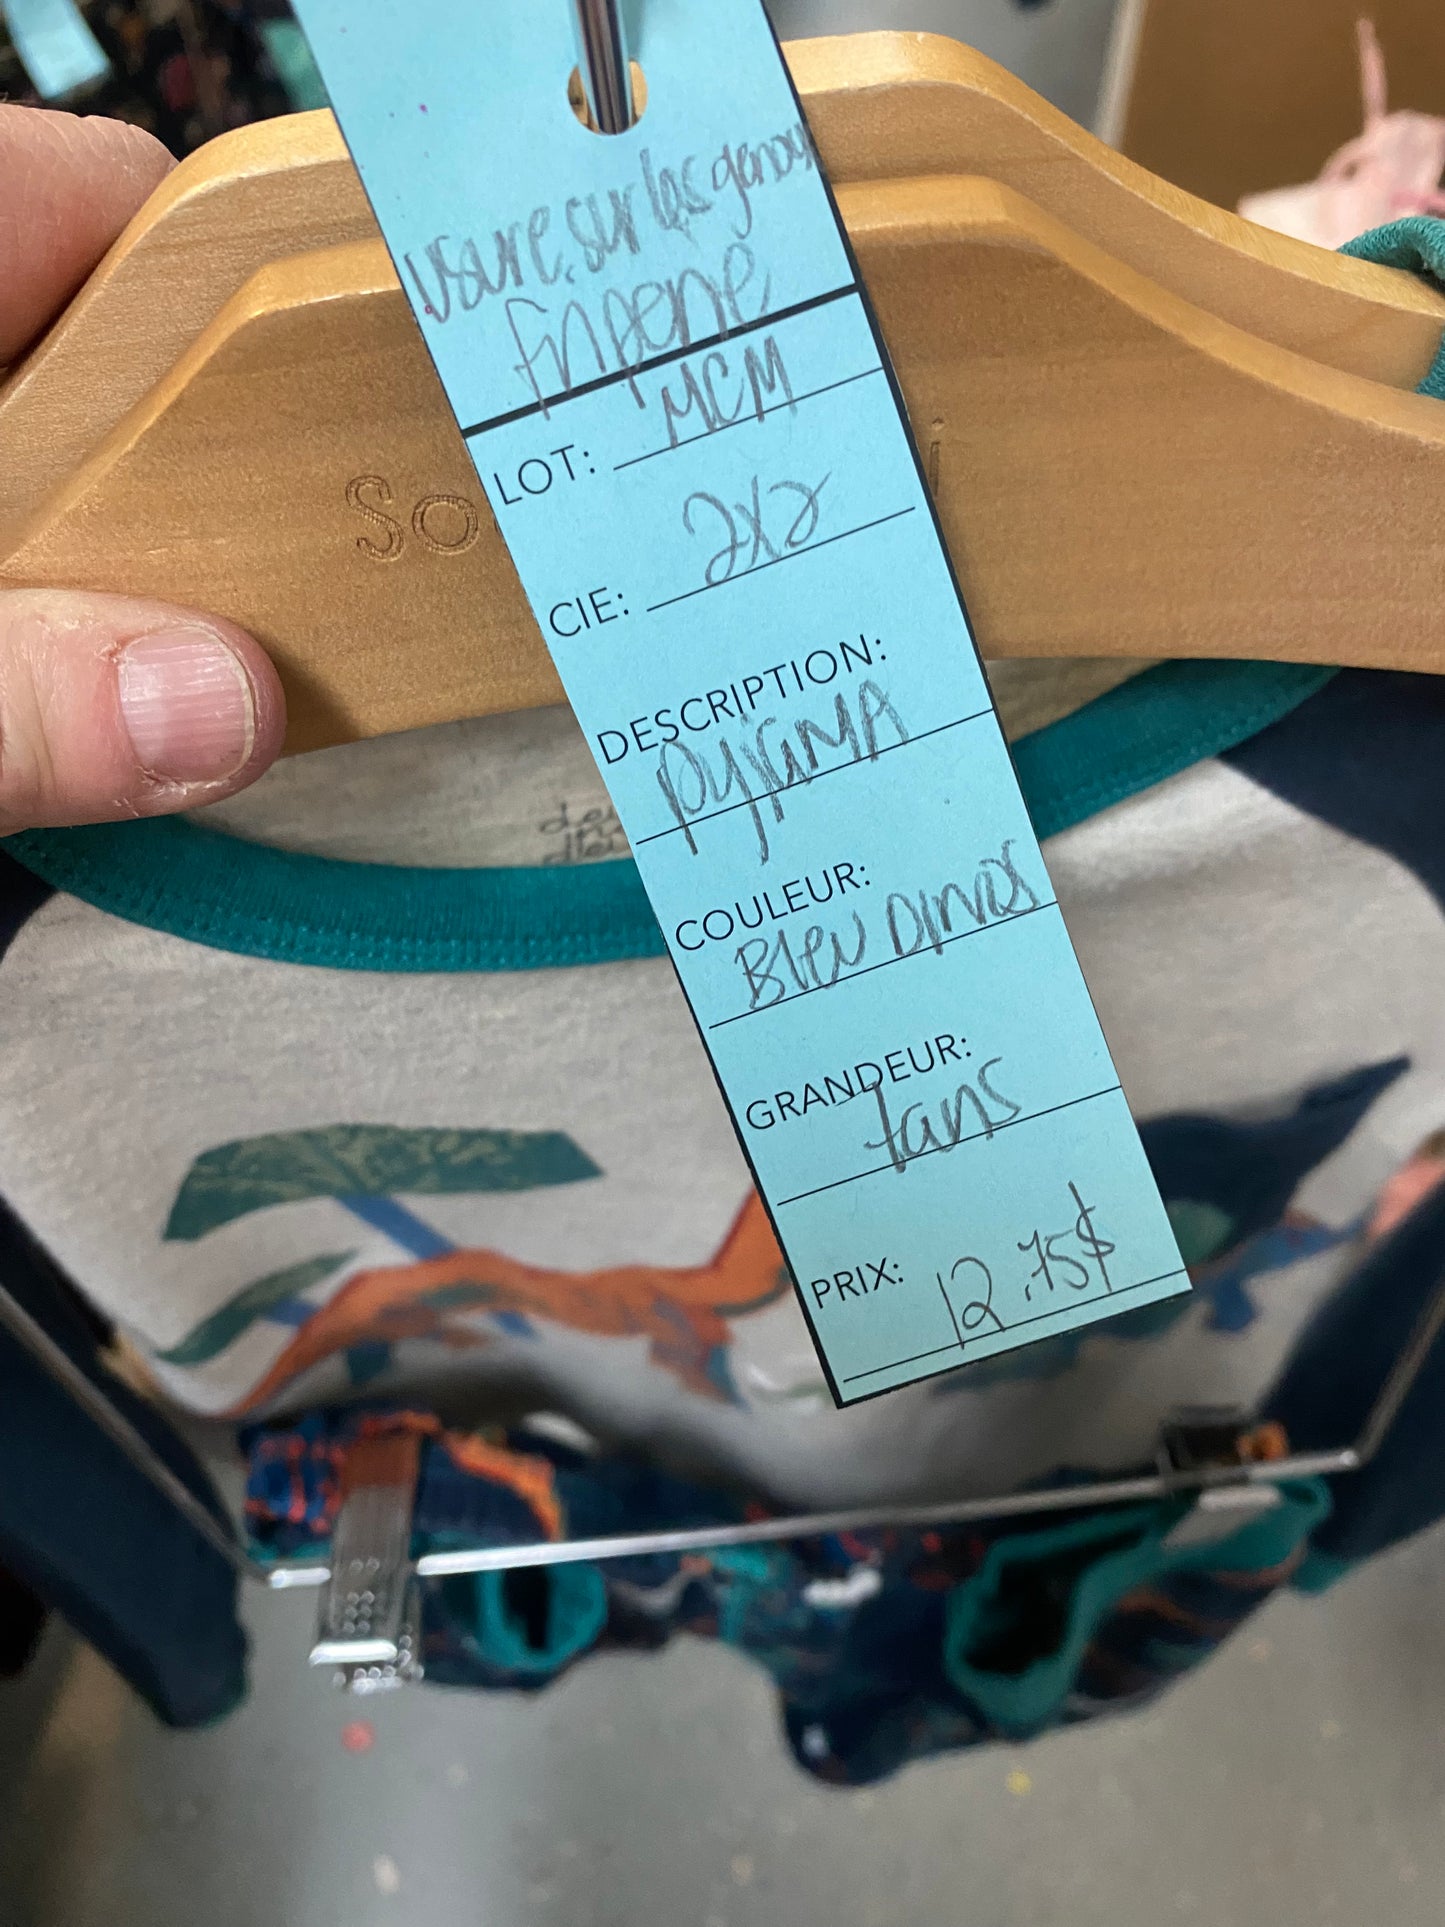 usure sur les genoux
Fripone
LOT: MCM
CIE: 2x2
DESCRIPTION:
pyjaMA
COULEUR:
Bleu DINOS
GRANDEUR:
7ans
PRIX: 12.75$
So
i